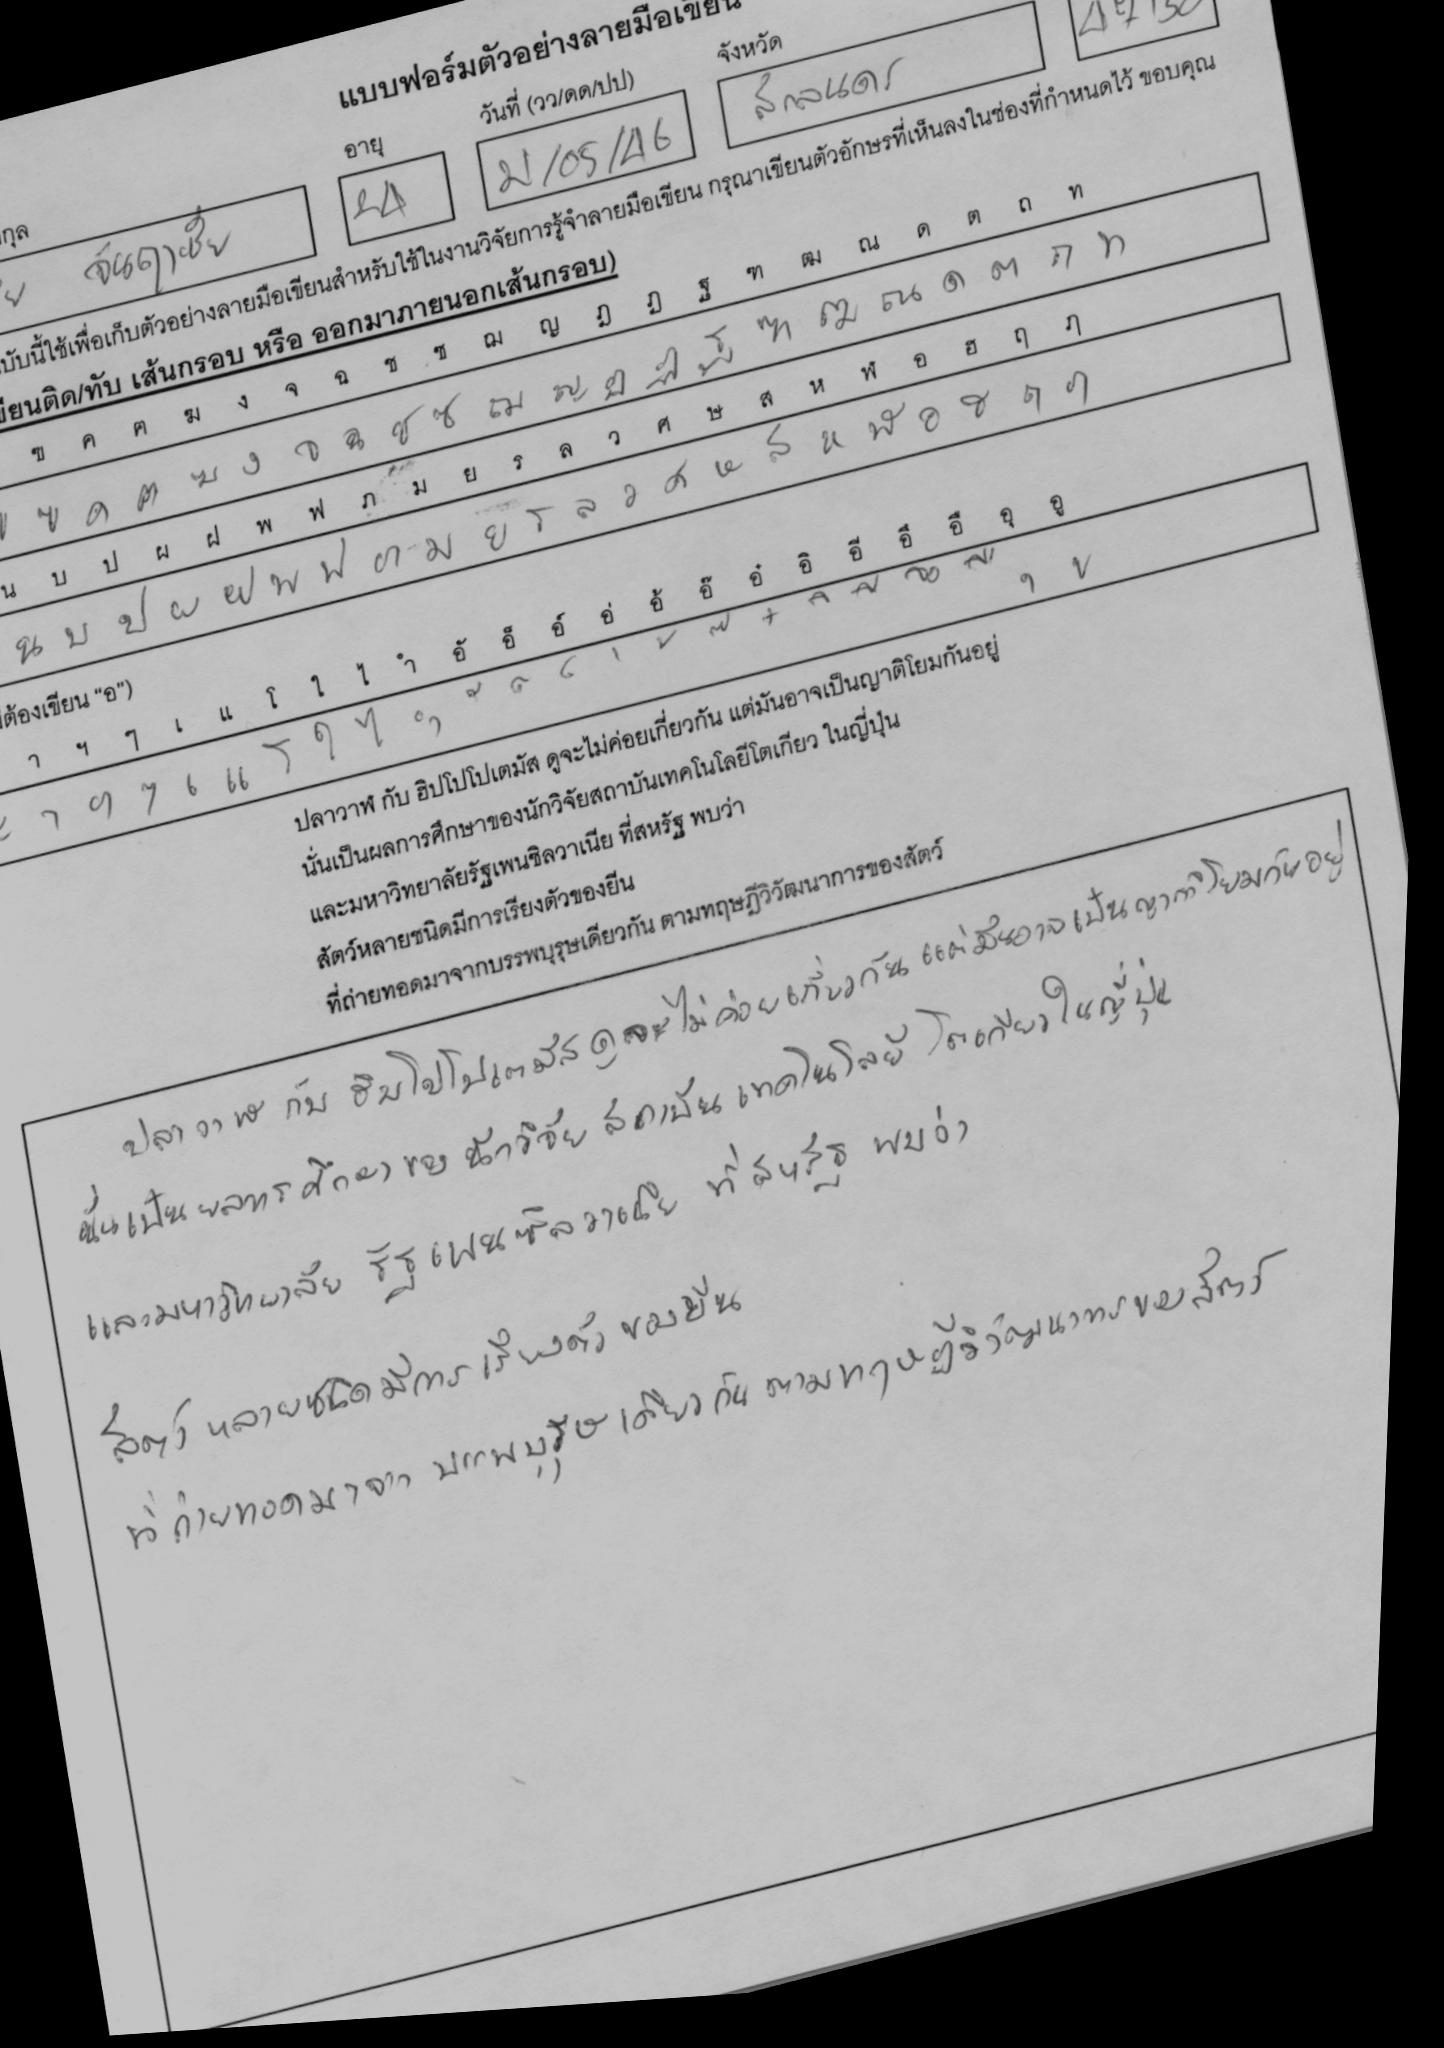 แบบฟอร์มตัวอย่างลายมือเขียน
อายุ วันที่ (วว/ดด/ปป) จังหวัด
24 /05/46 สกลนคร
บับนี้ใช้เพื่อเก็บตัวอย่างลายมือเขียนสำหรับใช้ในงานวิจัยการรู้จำลายมือเขียน กรุณาเขียนตัวอักษรที่เห็นลงในช่องที่กำหนดไว้ ขอบคุณ
ขียนติด/ทับ เส้นกรอบ หรือ ออกมาภายนอกเส้นกรอบ)
ฃ ค ฅ ฆ ง จ ฉ ช ซ ฌ ญ ฎ ฏ ฐ ฑ ฒ ณ ด ต ถ ท
ข ฃ ค ฅ ฆ ง จ ฉ ช ซ ฌ ญ ฎ ฏ ฐ ฑ ฒ ณ ด ต ถ ท
น บ ป ผ ฝ พ ฟ ภ ม ย ร ล ว ศ ษ ส ห ฬ อ ฮ ฤ ฦ
น บ ป ผ ฝ พ ฟ ภ ม ย ร ล ว ศ ษ ส ห ฬ อ ฮ ฤ ฦ
ต้องเขียน "อ")
า ฯ ๆ เ แ โ ใ ไ ำ อั อ็ อ์ อ่ อ้ อ๊ อ๋ อิ อี อึ อื อุ อู
ะ า ฯ ๆ เ แ โ ใ ไ ำ ั ็ ์ ่ ้ ๊ ๋ ิ ี ึ ื ุ ู
ปลาวาฬ กับ ฮิปโปโปเตมัส ดูจะไม่ค่อยเกี่ยวกัน แต่มันอาจเป็นญาติโยมกันอยู่
นั่นเป็นผลการศึกษาของนักวิจัยสถาบันเทคโนโลยีโตเกียว ในญี่ปุ่น
และมหาวิทยาลัยรัฐเพนซิลวาเนีย ที่สหรัฐ พบว่า
สัตว์หลายชนิดมีการเรียงตัวของยีน
ที่ถ่ายทอดมาจากบรรพบุรุษเดียวกัน ตามทฤษฎีวิวัฒนาการของสัตว์
ปลาวาฬ กับ ฮิปโปโปเตมัส ดูจะไม่ค่อยเกี่ยวกัน แต่มันอาจเป็นญาติโยมกันอยู่
นั่นเป็นผลการศึกษาของนักวิจัย สถาบัน เทคโนโลยี โตเกียว ในญี่ปุ่น
และมหาวิทยาลัย รัฐเพนซิลวาเนีย ที่สหรัฐ พบว่า
สัตว์ หลายชนิดมีการ เรียงตัว ของยีน
ที่ถ่ายทอดมาจาก บรรพบุรุษเดียวกัน ตามทฤษฎีวิวัฒนาการของสัตว์